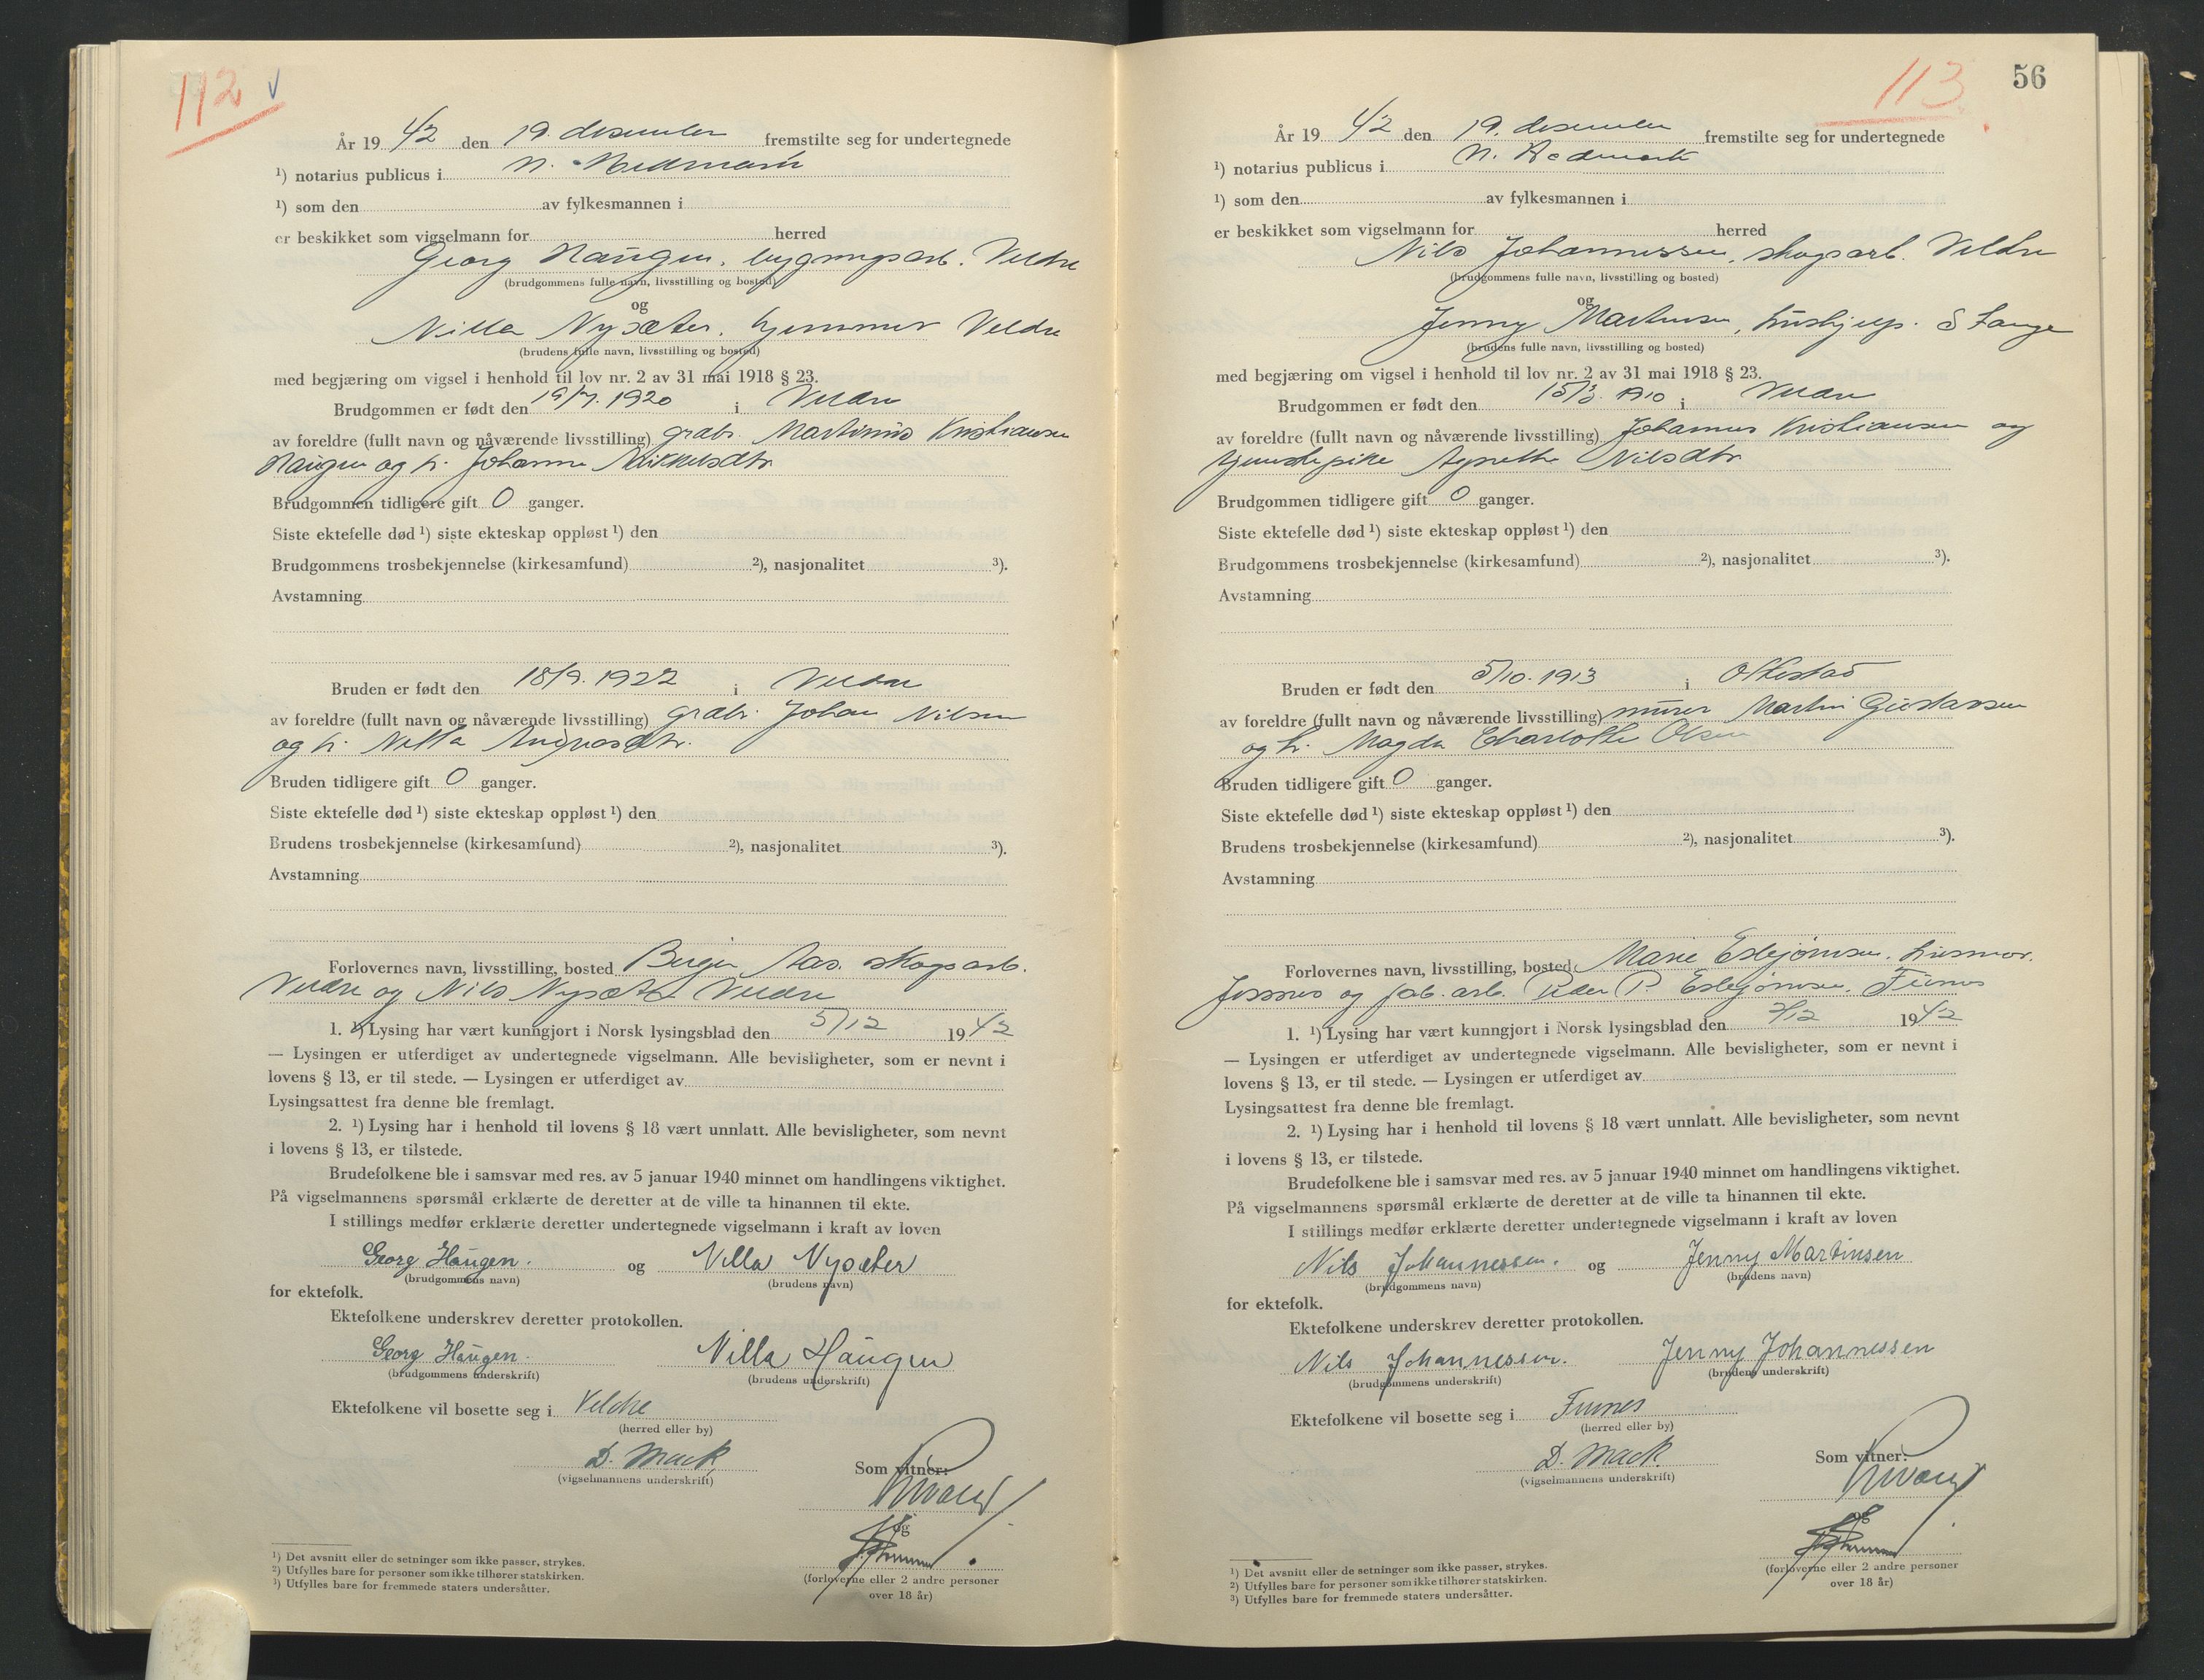 112 ✓
År 19 42 den 19. desember fremstilte seg for undertegnede
¹) notarius publicus i N. Hedmark
¹) som den av fylkesmannen i
er beskikket som vigselmann for herred
Georg Haugen, bygningsarb. Veldre
(brudgommens fulle navn, livsstilling og bosted)
og
Nilla Nysæter, hjemmev Veldre
(brudens fulle navn, livsstilling og bosted)
med begjæring om vigsel i henhold til lov nr. 2 av 31 mai 1918 § 23.
Brudgommen er født den 19/7. 1920 i Veldre
av foreldre (fullt navn og nåværende livsstilling) grdbr. Martinius Kristiansen
Haugen og h. Johanne Mikkelsdtr
Brudgommen tidligere gift 0 ganger.
Siste ektefelle død ¹) siste ekteskap oppløst ¹) den
Brudgommens trosbekjennelse (kirkesamfund) ²), nasjonalitet ³).
Avstamning
Bruden er født den 18/9. 1922 i Veldre
av foreldre (fullt navn og nåværende livsstilling) grdbr. Johan Nilsen
og h. Nilla
Bruden tidligere gift 0 ganger.
Siste ektefelle død ¹) siste ekteskap oppløst ¹) den
Brudens trosbekjennelse (kirkesamfund) ²), nasjonalitet ³).
Avstamning
Forlovernes navn, livsstilling, bosted Birger Aas. skogsarb.
Veldre og Nils Nysæter Veldre
1. ¹) Lysing har vært kunngjort i Norsk lysingsblad den 5/12 19 42
— Lysingen er utferdiget av undertegnede vigselmann. Alle bevisligheter, som er nevnt i
lovens § 13, er til stede. — Lysingen er utferdiget av
Lysingsattest fra denne ble fremlagt.
2. ¹) Lysing har i henhold til lovens § 18 vært unnlatt. Alle bevisligheter, som nevnt
i lovens § 13, er tilstede.
Brudefolkene ble i samsvar med res. av 5 januar 1940 minnet om handlingens viktighet.
På vigselmannens spørsmål erklærte de deretter at de ville ta hinannen til ekte.
I stillings medfør erklærte deretter undertegnede vigselmann i kraft av loven
Georg Haugen. og Nilla Nysæter
(brudgommens navn) (brudens navn)
for ektefolk.
Ektefolkene underskrev deretter protokollen.
Georg Haugen. Nilla Haugen
(brudgommens underskrift) (brudens underskrift)
Ektefolkene vil bosette seg i Veldre
(herred eller by)
D. Mack
(vigselmannens underskrift)
Som vitner:
og
(forloverne eller 2 andre personer
over 18 år)
¹) Det avsnitt eller de setninger som ikke passer, strykes.
²) Utfylles bare for personer som ikke tilhører statskirken.
³) Utfylles bare for fremmede staters undersåtter.
113 56
År 19 42 den 19. desember fremstilte seg for undertegnede
¹) notarius publicus i N. Hedmark
¹) som den av fylkesmannen i
er beskikket som vigselmann for herred
Nils Johannessen, skogsarb. Veldre
(brudgommens fulle navn, livsstilling og bosted)
og
Jenny Martinsen, hushjelp. S Stange
(brudens fulle navn, livsstilling og bosted)
med begjæring om vigsel i henhold til lov nr. 2 av 31 mai 1918 § 23.
Brudgommen er født den 15/3. 1910 i Veldre
av foreldre (fullt navn og nåværende livsstilling) Johannes Kristiansen og
tjenestepike Agnethe Nilsdtr
Brudgommen tidligere gift 0 ganger.
Siste ektefelle død ¹) siste ekteskap oppløst ¹) den
Brudgommens trosbekjennelse (kirkesamfund) ²), nasjonalitet ³).
Avstamning
Bruden er født den 5/10. 1913 i Ottestad
av foreldre (fullt navn og nåværende livsstilling) murer Martin Gustavsen
og h. Magda Charlotte Olsen
Bruden tidligere gift 0 ganger.
Siste ektefelle død ¹) siste ekteskap oppløst ¹) den
Brudens trosbekjennelse (kirkesamfund) ²), nasjonalitet ³).
Avstamning
Forlovernes navn, livsstilling, bosted Marie Esbjørnsen. husmor.
og fab. arb. Peder P. Esbjørnsen. Furnes
1. ¹) Lysing har vært kunngjort i Norsk lysingsblad den 2/12 19 42
— Lysingen er utferdiget av undertegnede vigselmann. Alle bevisligheter, som er nevnt i
lovens § 13, er til stede. — Lysingen er utferdiget av
Lysingsattest fra denne ble fremlagt.
2. ¹) Lysing har i henhold til lovens § 18 vært unnlatt. Alle bevisligheter, som nevnt
i lovens § 13, er tilstede.
Brudefolkene ble i samsvar med res. av 5 januar 1940 minnet om handlingens viktighet.
På vigselmannens spørsmål erklærte de deretter at de ville ta hinannen til ekte.
I stillings medfør erklærte deretter undertegnede vigselmann i kraft av loven
Nils Johannessen. og Jenny Martinsen
(brudgommens navn) (brudens navn)
for ektefolk.
Ektefolkene underskrev deretter protokollen.
Nils Johannessen. Jenny Johannessen
(brudgommens underskrift) (brudens underskrift)
Ektefolkene vil bosette seg i Furnes
(herred eller by)
D. Mack.
(vigselmannens underskrift)
Som vitner:
og
(forloverne eller 2 andre personer
over 18 år)
¹) Det avsnitt eller de setninger som ikke passer, strykes.
²) Utfylles bare for personer som ikke tilhører statskirken.
³) Utfylles bare for fremmede staters undersåtter.